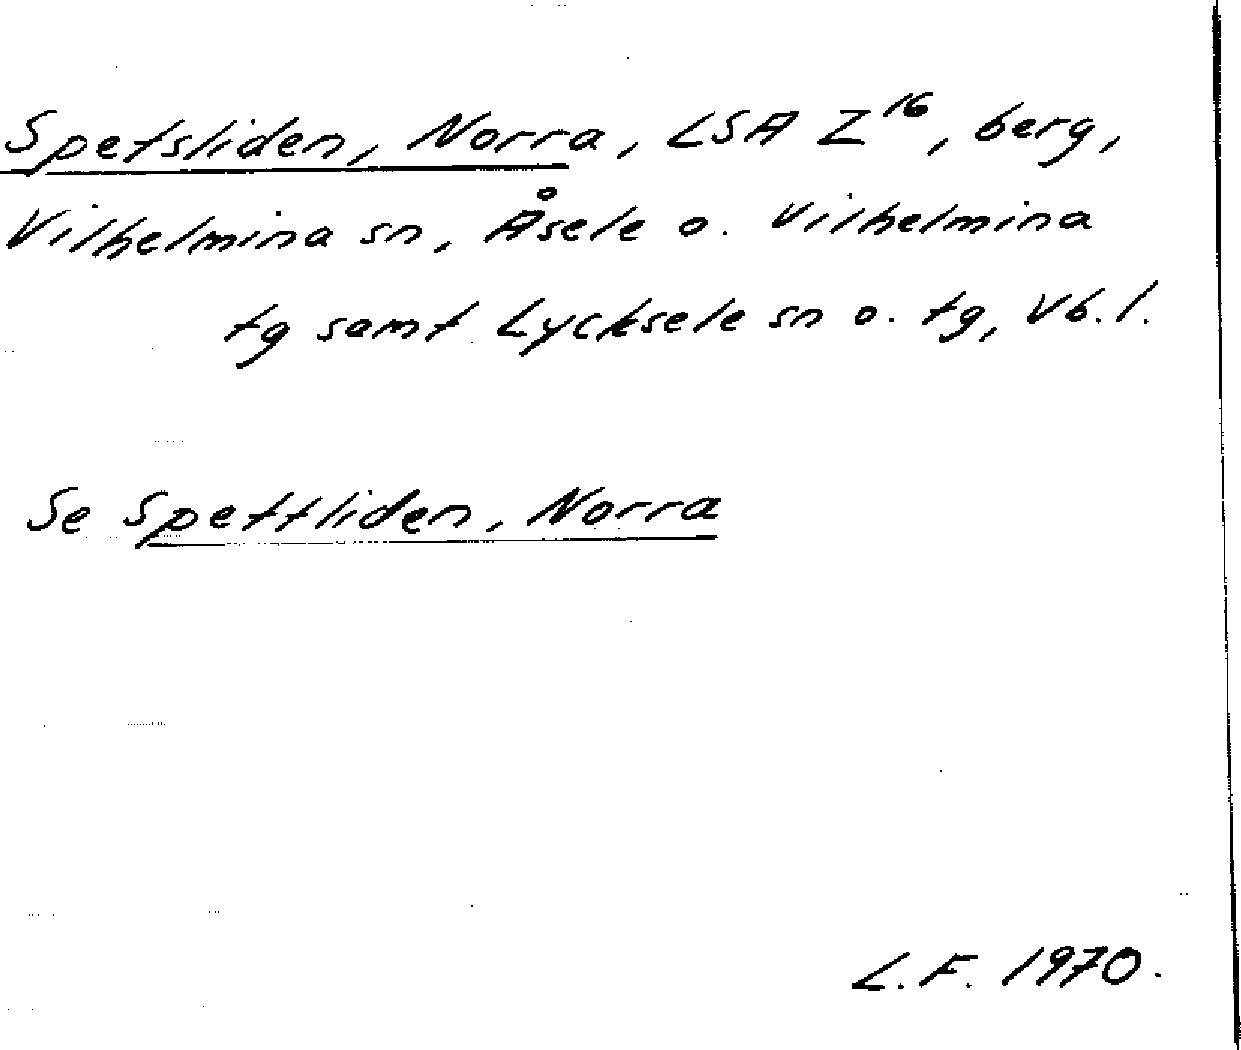 Spetsliden, Norra, LSA Z16, berg,
Vilhelmina sn, Åsele o. Vilhelmina
tg samt Lycksele sn o. tg, Vb.l.
Se Spettliden, Norra
L.F. 1970.